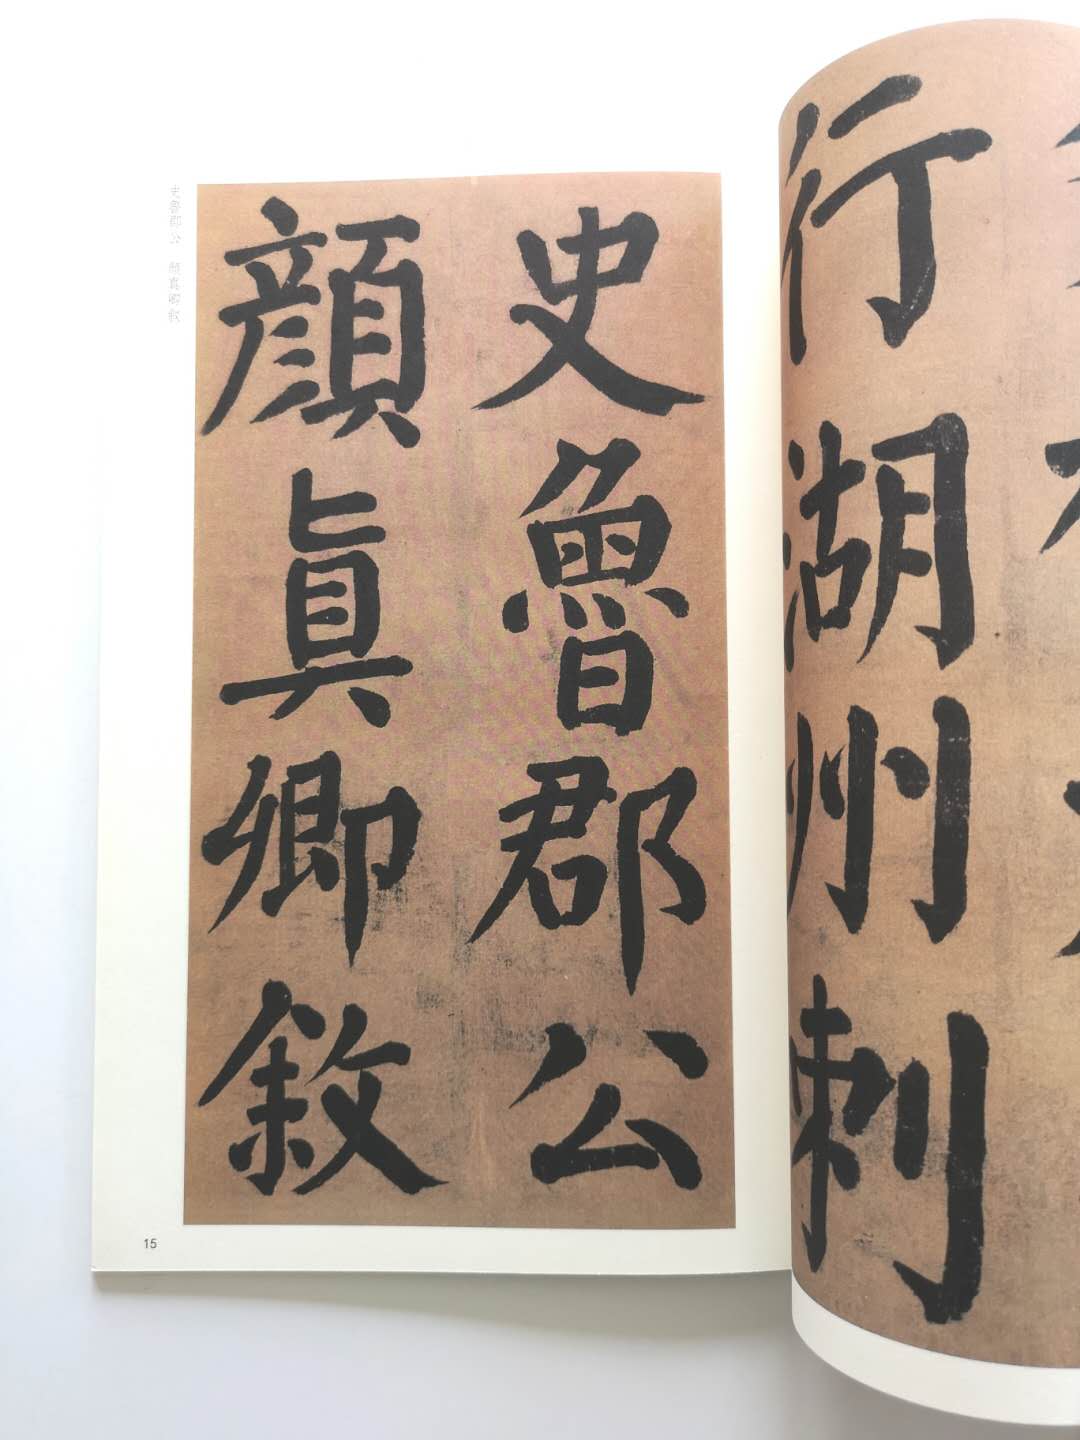 行湖州刺
史魯郡公
顏真卿敘
史魯郡公 顏真卿叙
15